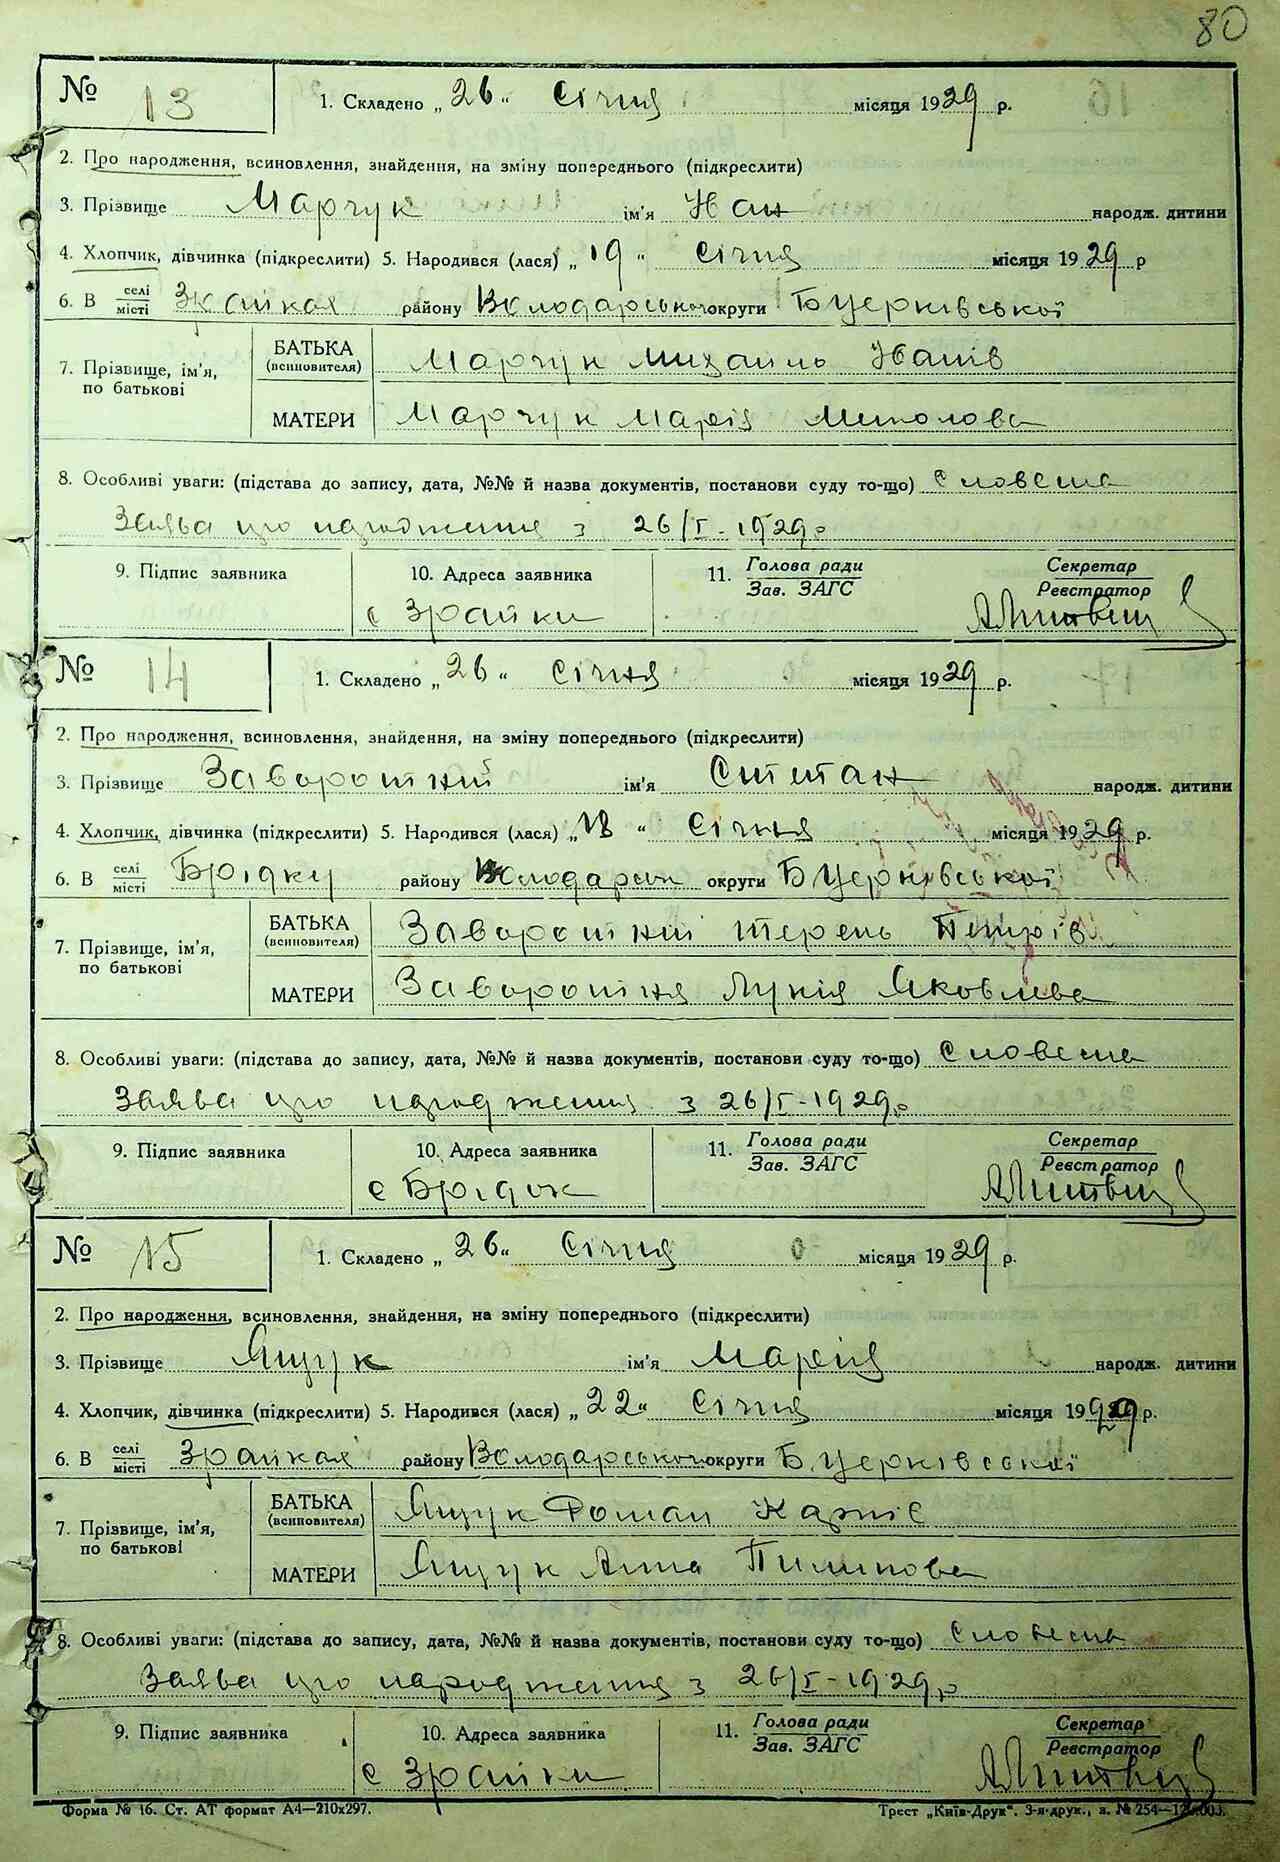 80
№ 13 1. Складено „26“ Січня місяця 1929 р.
2. Про народження, всиновлення, знайдення, на зміну попереднього (підкреслити)
3. Прізвище Марчук ім'я Іван народж. дитини
4. Хлопчик, дівчинка (підкреслити) 5. Народився (лася) „19“ Січня місяця 1929 р
6. В селі/місті Зрайках району Володарського округи Б Церківської
7. Прізвище, ім'я, по батькові
БАТЬКА (всиновителя) Марчук Михайло Іванів
МАТЕРИ Марчук Марія Миколова
8. Особливі уваги: (підстава до запису, дата, №№ й назва документів, постанови суду то-що) Словесна
Заява про народження з 26/I-1929р
9. Підпис заявника 10. Адреса заявника 11. Голова ради/Зав. ЗАГС Секретар/Реєстратор
с Зрайки
№ 14 1. Складено „26“ Січня місяця 1929 р.
2. Про народження, всиновлення, знайдення, на зміну попереднього (підкреслити)
3. Прізвище Заворотний ім'я Степан народж. дитини
4. Хлопчик, дівчинка (підкреслити) 5. Народився (лася) „18“ Січня місяця 1929 р.
6. В селі/місті Брідку району Володарск округи Б Церківської
7. Прізвище, ім'я, по батькові
БАТЬКА (всиновителя) Заворотній Терень Петрів
МАТЕРИ Заворотня Лукія Яковлева
8. Особливі уваги: (підстава до запису, дата, №№ й назва документів, постанови суду то-що) Словесна
Заява про народження з 26/I-1929р
9. Підпис заявника 10. Адреса заявника 11. Голова ради/Зав. ЗАГС Секретар/Реєстратор
с Брідок
№ 15 1. Складено „26“ Січня місяця 1929 р.
2. Про народження, всиновлення, знайдення, на зміну попереднього (підкреслити)
3. Прізвище Ящук ім'я Марія народж. дитини
4. Хлопчик, дівчинка (підкреслити) 5. Народився (лася) „22“ Січня місяця 1929 р.
6. В селі/місті Зрайках району Володарського округи Б. Церківської
7. Прізвище, ім'я, по батькові
БАТЬКА (всиновителя) Ящук Роман
МАТЕРИ Ящук Анна Пилипова
8. Особливі уваги: (підстава до запису, дата, №№ й назва документів, постанови суду то-що) Словесна
Заява про народження з 26/I-1929р
9. Підпис заявника 10. Адреса заявника 11. Голова ради/Зав. ЗАГС Секретар/Реєстратор
с Зрайки
Форма № 16. Ст. АТ формат А4—210х297. Трест „Київ-Друк“. 3-я друк., з. № 254—